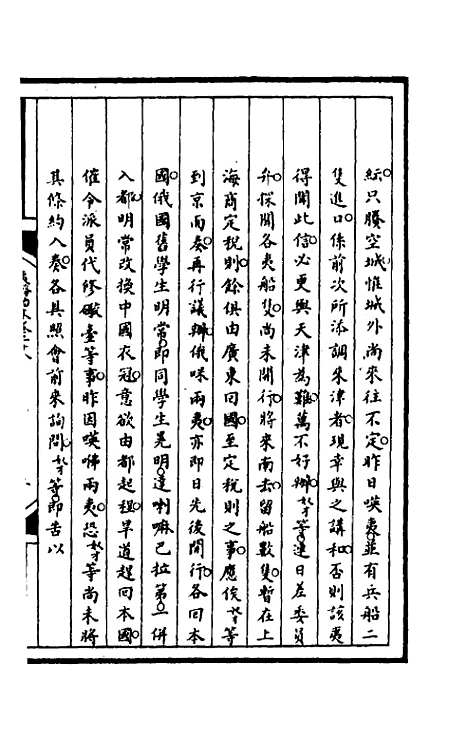 綜只賸空城惟城外尚來往不定昨日嘆夷並有兵船二
隻進口係前次所添調來津者現幸與之講和否則該夷
得開此信必更與天津為難萬不好辦奴才等連日差委員
弁探聞各夷船隻尚未開行將來南去留船數隻暫在上
海商定稅則餘俱由廣東回國至定稅則之事應俟奴才等
到京面奏再行議辦俄咪兩夷亦即日先後開行各回本
國俄國舊學生明常即同學生晃明達喇嘛巴拉第一併
入都明常改換中國衣冠意欲由都起程早道趕回本國
催令派員代修礮臺等事昨因嘆咈兩夷恐奴才等尚未將
其條約入奏各具照會前來詢問奴才等即告以